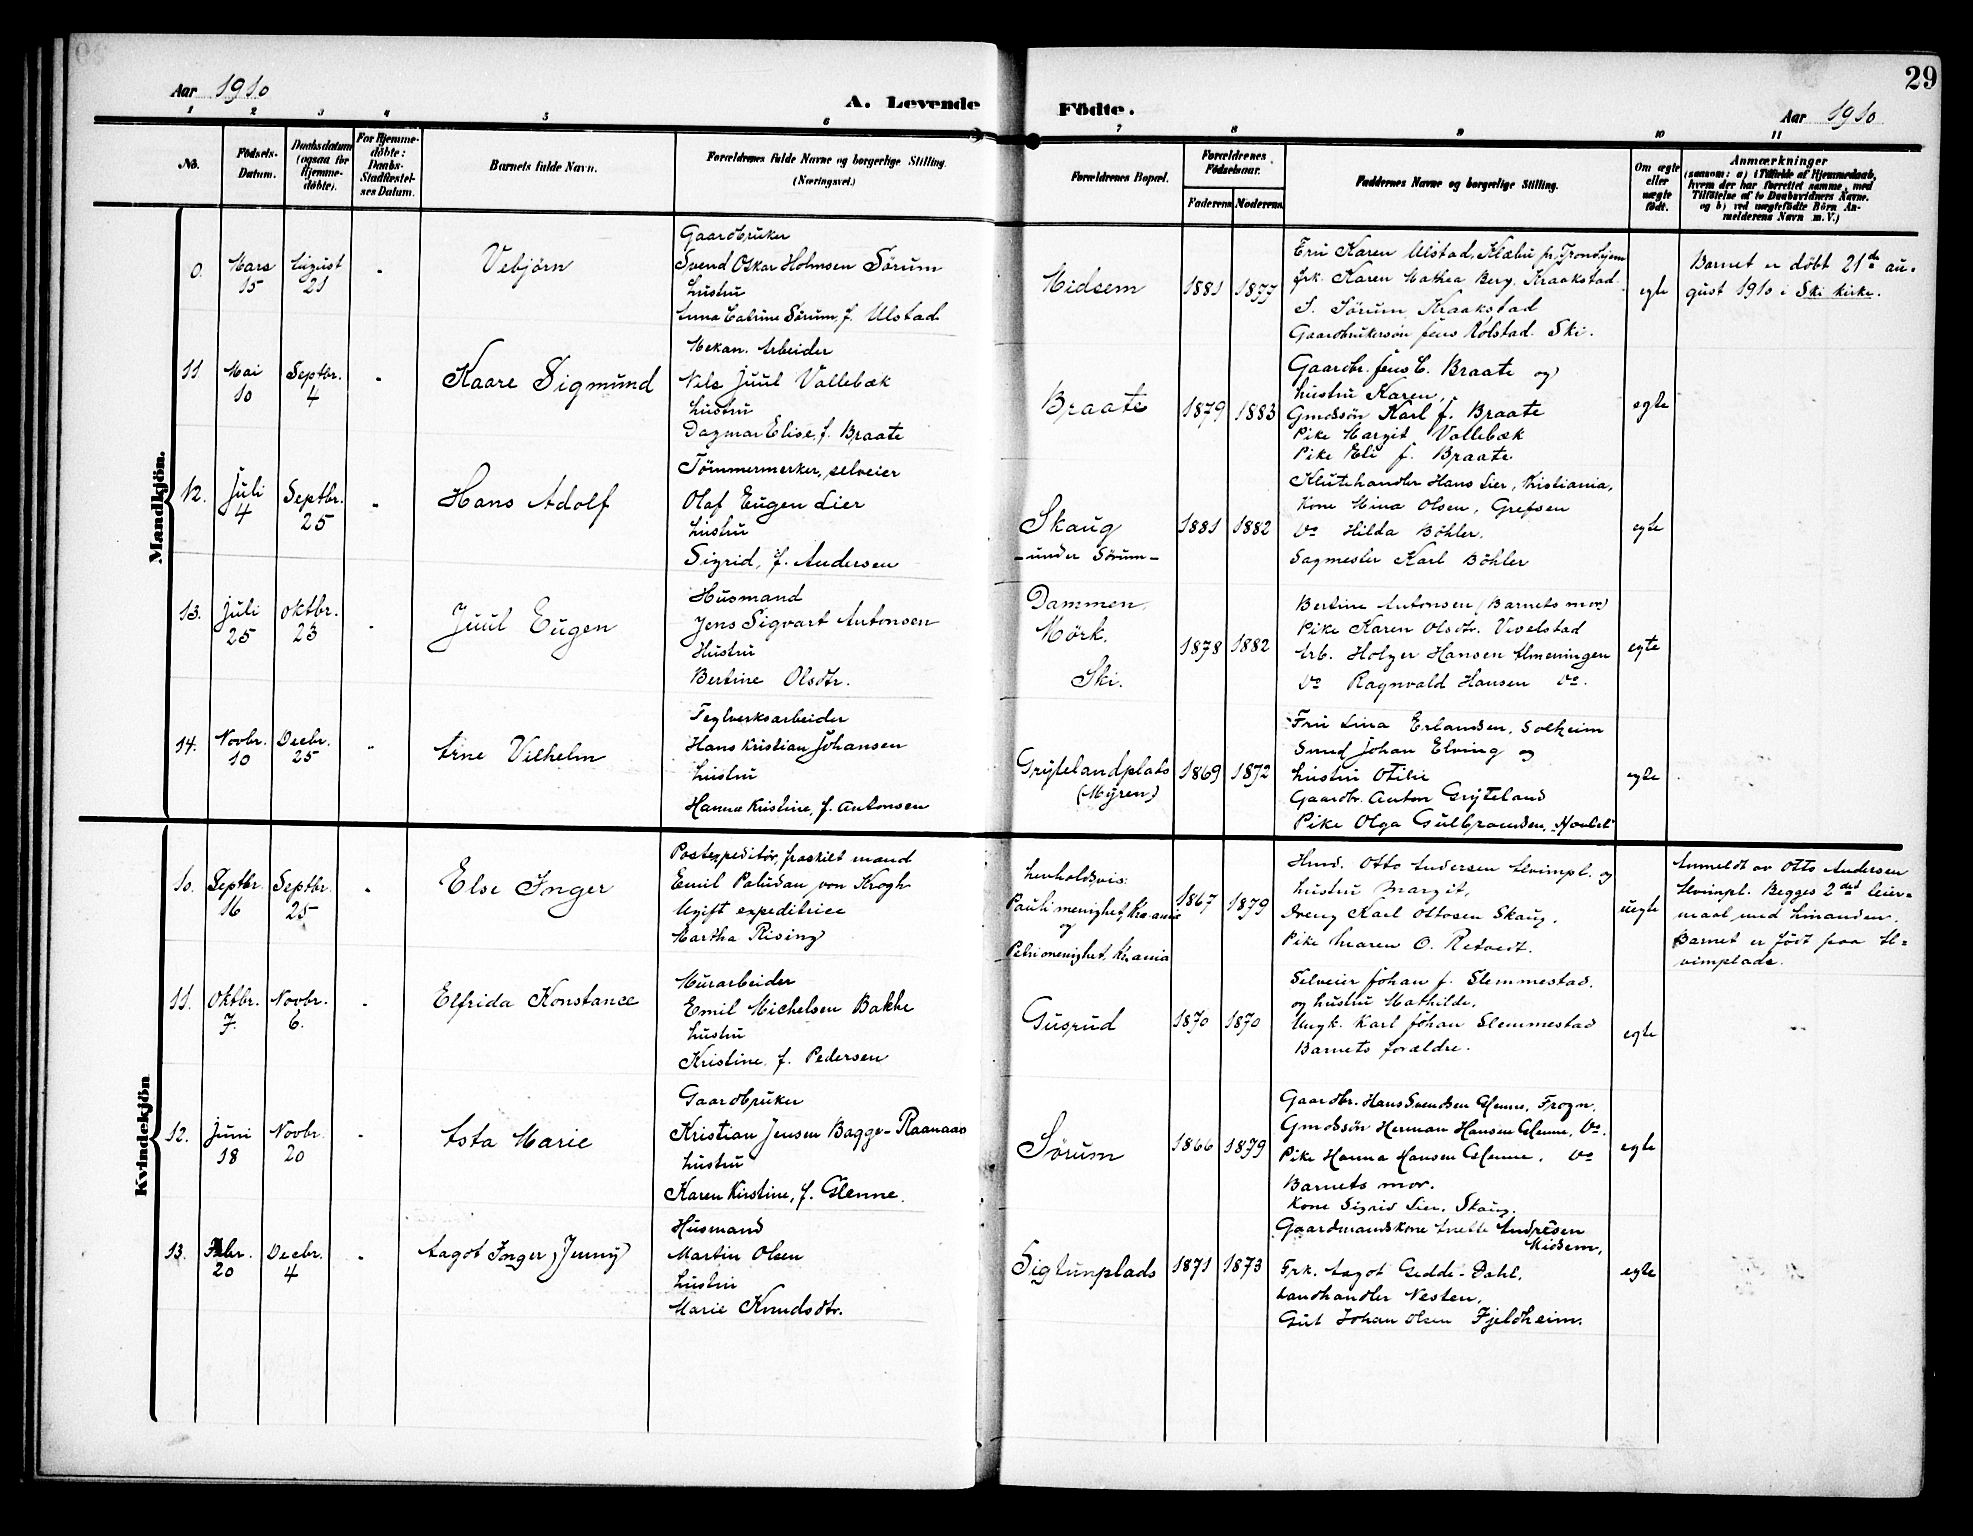 Aar 1910
A. Levende
Födte.
Aar 1910
29
1 2 3 4 5 6 7 8 9 10 11
No.
Födsels-
Datum.
Daabsdatum
(ogsaa for
Hjemme-
döbte).
For Hjemme-
döbte:
Daabs-
Stadfæstel-
ses Datum.
Barnets fulde Navn.
Forældrenes fulde Navne og borgerlige Stilling.
(Næringsvei.)
Forældrenes Bopæl.
Forældrenes
Födselsaar.
Faderens Moderens
Faddernes Navne og borgerlige Stilling.
Om ægte
eller
uægte
födt.
Anmærkninger
(saasom: a) i Tilfælde af Hjemmedaab,
hvem der har forrettet samme, med
Tilföielse af to Daabsvidners Navne.
og b) ved uægtefödte Börn An-
melderens Navn m. V.)
Mandkjön.
0.
Mars
15
August
21
"
Vebjörn
Gaardbruker
Svend Oskar Holmsen Sørum
hustru
Anna Catrine Sørum, f. Ulstad
Midsem
1881
1877
Fru Karen Ulstad, Klæbu pr. Trondhjem
Frk. Karen Mathea Berg, Kraakstad
S. Sørum, Kraakstad
Gaardbrukersøn Jens Rolstad. Ski.
egte
Barnet er döbt 21de au-
gust 1910 i Ski kirke.
11.
Mai
10
Septbr.
4
"
Kaare Sigmund
Mekan. Arbeider
Nils Juul Vallebæk
hustru
Dagmar Elise, f. Braate
Braate
1879
1883
Gaardbr. Jens C. Braate og
hustru Karen,
Gmdssøn Karl J. Braate
Pike Margit Vallebæk
Pike Eli J. Braate
egte
12.
Juli
4
Septbr.
25
"
Hans Adolf
Tömmermerker, selveier
Olaf Eugen Lier
hustru
Sigrid, f. Andersen
Skaug
- under Sørum -
1881
1882
Klutehandler Hans Lier, Kristiania,
Kone Mina Olsen, Grefsen
Do Hilda Böhler.
Sagmester Karl Böhler
egte
13.
Juli
25
Oktbr.
23
"
Juul Eugen
Husmand
Jens Sigvart Antonsen
Hustru
Bertine Olsdtr.
Dammen,
Mörk.
Ski.
1878
1882
Bertine Antonsen (Barnets mor)
Pike Karen Olsdtr. Vevelstad
Arb. Holger Hansen Almenningen
Do Ragnvald Hansen Do.
egte
14.
Novbr.
10
Decbr.
25
"
Arne Vilhelm
Teglverksarbeider
Hans Kristian Johansen
hustru
Hanna Kristine, f. Antonsen
Grytelandplats
(Myren)
1869
1872
Fru Lina Erlandsen, Solheim
Smed Johan Elving og
hustru Otilie
Gaardbr. Anton Gryteland
Pike Olga Gulbrandsen,
egte
Kvindekjön
10.
Septbr.
16
Septbr.
25
"
Else Inger
Postexpeditör, fraskilt mand
Emil Paludan von Krogh
Ugift expeditrice
Martha Rising
henholdsvis:
Pauli menighet Kr.ania
og
Petri menighet, Kr.ania
1867
1879
Hmd. Otto Andersen Hvimpl. og
hustru Margit,
Dreng Karl Ottosen Skaug,
Pike Maren O. Retvedt.
uegte
Anmeldt av Otto Andersen
Hvimpl. Begges 2det leier-
maal med hinanden.
Barnet er født paa H-
vimplads.
11.
Oktbr.
7.
Novbr.
6.
"
Elfrida Konstance
Murarbeider
Emil Michelsen Bakke
hustru
Kristine, f. Pedersen
Gusrud
1870
1870
Selveier Johan J. Slemmestad.
og hustru Mathilde,
Ungk. Karl Johan Slemmestad
Barnets forældre.
egte
12.
Juni
18
Novbr.
20
"
Asta Marie
Gaardbruker
Kristian Jensen Bagge-Raanaas
hustru
Karen Kirstine, f. Glenne
Sørum
1866
1879
Gaardbr. Hans Svendsen Glenne, Frogn.
Gmdssøn Herman Hansen Glenne, Do.
Pike Hanna Hansen Glenne, Do
Barnets mor.
Kone Sigrid Lier, Skaug.
egte
13.
Febr.
20
Decbr.
4
"
Aagot Inger Jenny
Husmand
Martin Olsen
hustru
Marie Knudsdtr.
Sigtunplads
1871
1873
Gaardmandskone Anette Andresen
Midsem,
Frk. Aagot Gedde-Dahl,
Landhandler Nesten,
Gut Johan Olsen Fjeldheim.
egte